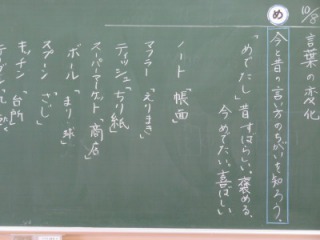 10/8 言葉の変化
め 今と昔の言い方のちがいを知ろう。
「めでたし」昔 すばらしい、褒める、
今 めでたい、喜ばしい
ノート「帳面」
マフラー「えりまき」
ティッシュ「ちり紙」
スーパーマーケット「商店」
ボール「まり、球」
スプーン「さじ」
キッチン「台所」